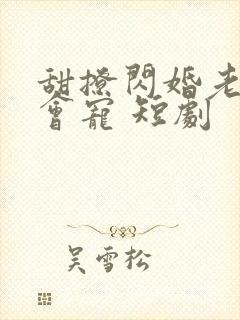 甜撩閃婚老
會寵 短劇
吳雪松